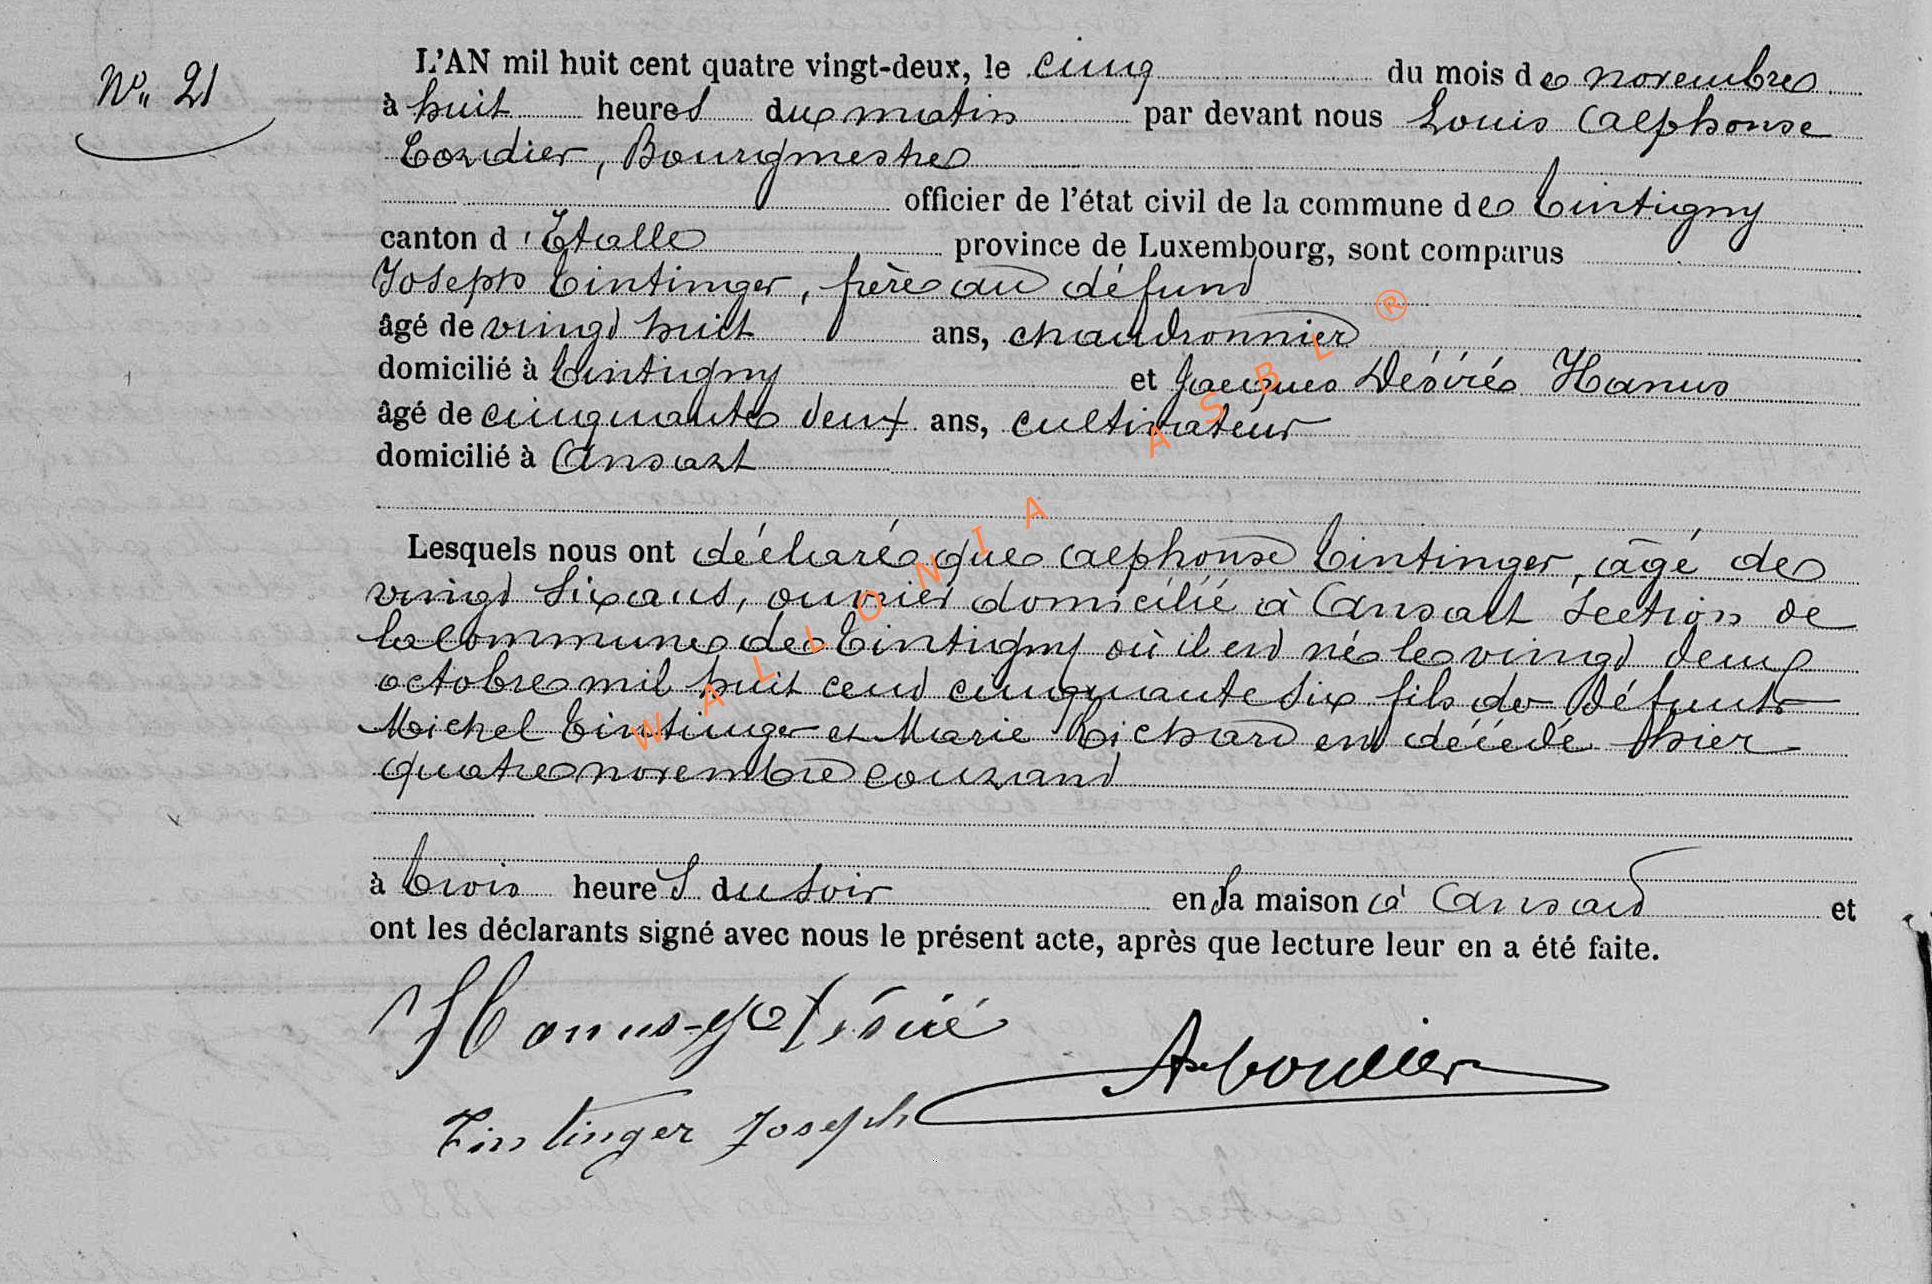 N° 21
L'AN mil huit cent quatre vingt-deux, le cinq du mois de novembre
à huit heures du matin par devant nous Louis Alphonse
Cordier, Bourgmestre
officier de l'état civil de la commune de Tintigny
canton d'Etalle province de Luxembourg, sont comparus
Joseph Tintinger, frère au défunt
âgé de vingt huit ans, chaudronnier
domicilié à Tintigny et Jacques Désiré Hanus
âgé de cinquante deux ans, cultivateur
domicilié à Ansart
Lesquels nous ont déclaré que Alphonse Tintinger, âgé de
vingt six ans, ouvrier domicilié à Ansart section de
la commune de Tintigny où il est né le vingt deux
octobre mil huit cent cinquante six fils de défunts
Michel Tintinger et Marie Richard est décédé hier
quatre novembre courant
à trois heures du soir en sa maison à Ansart et
ont les déclarants signé avec nous le présent acte, après que lecture leur en a été faite.
Hanus-Jq Désiré
A Cordier
Tintinger Joseph
WALLONIA ASBL ®